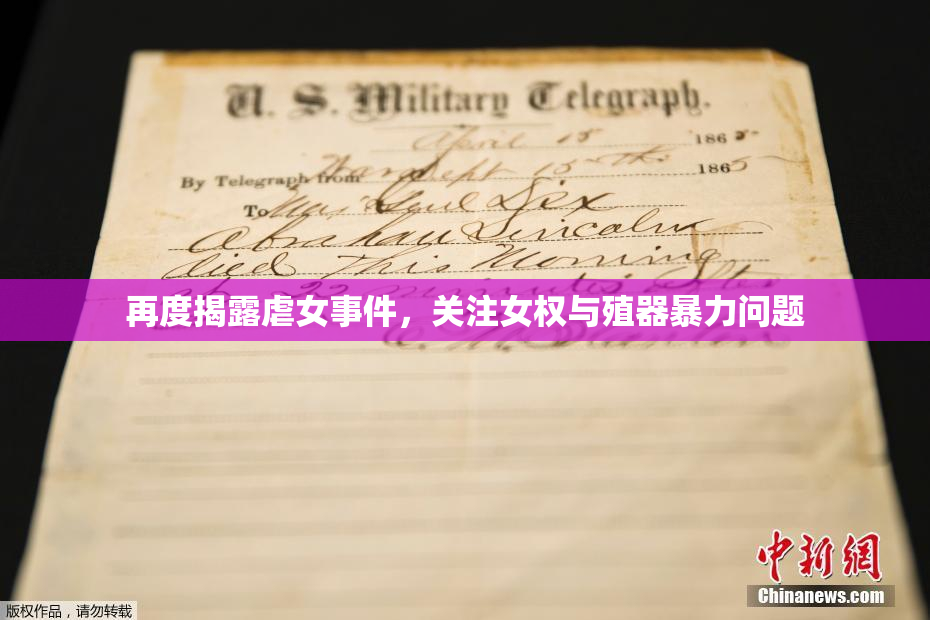 U. S. Military Telegraph.
April 15 1865
By Telegraph from War Dept 15th 1865
To Maj Genl Dix
Abraham Lincoln
died This Morning
at 22 minutes after
再度揭露虐女事件，关注女权与殖器暴力问题
版权作品，请勿转载
中新网
Chinanews.com